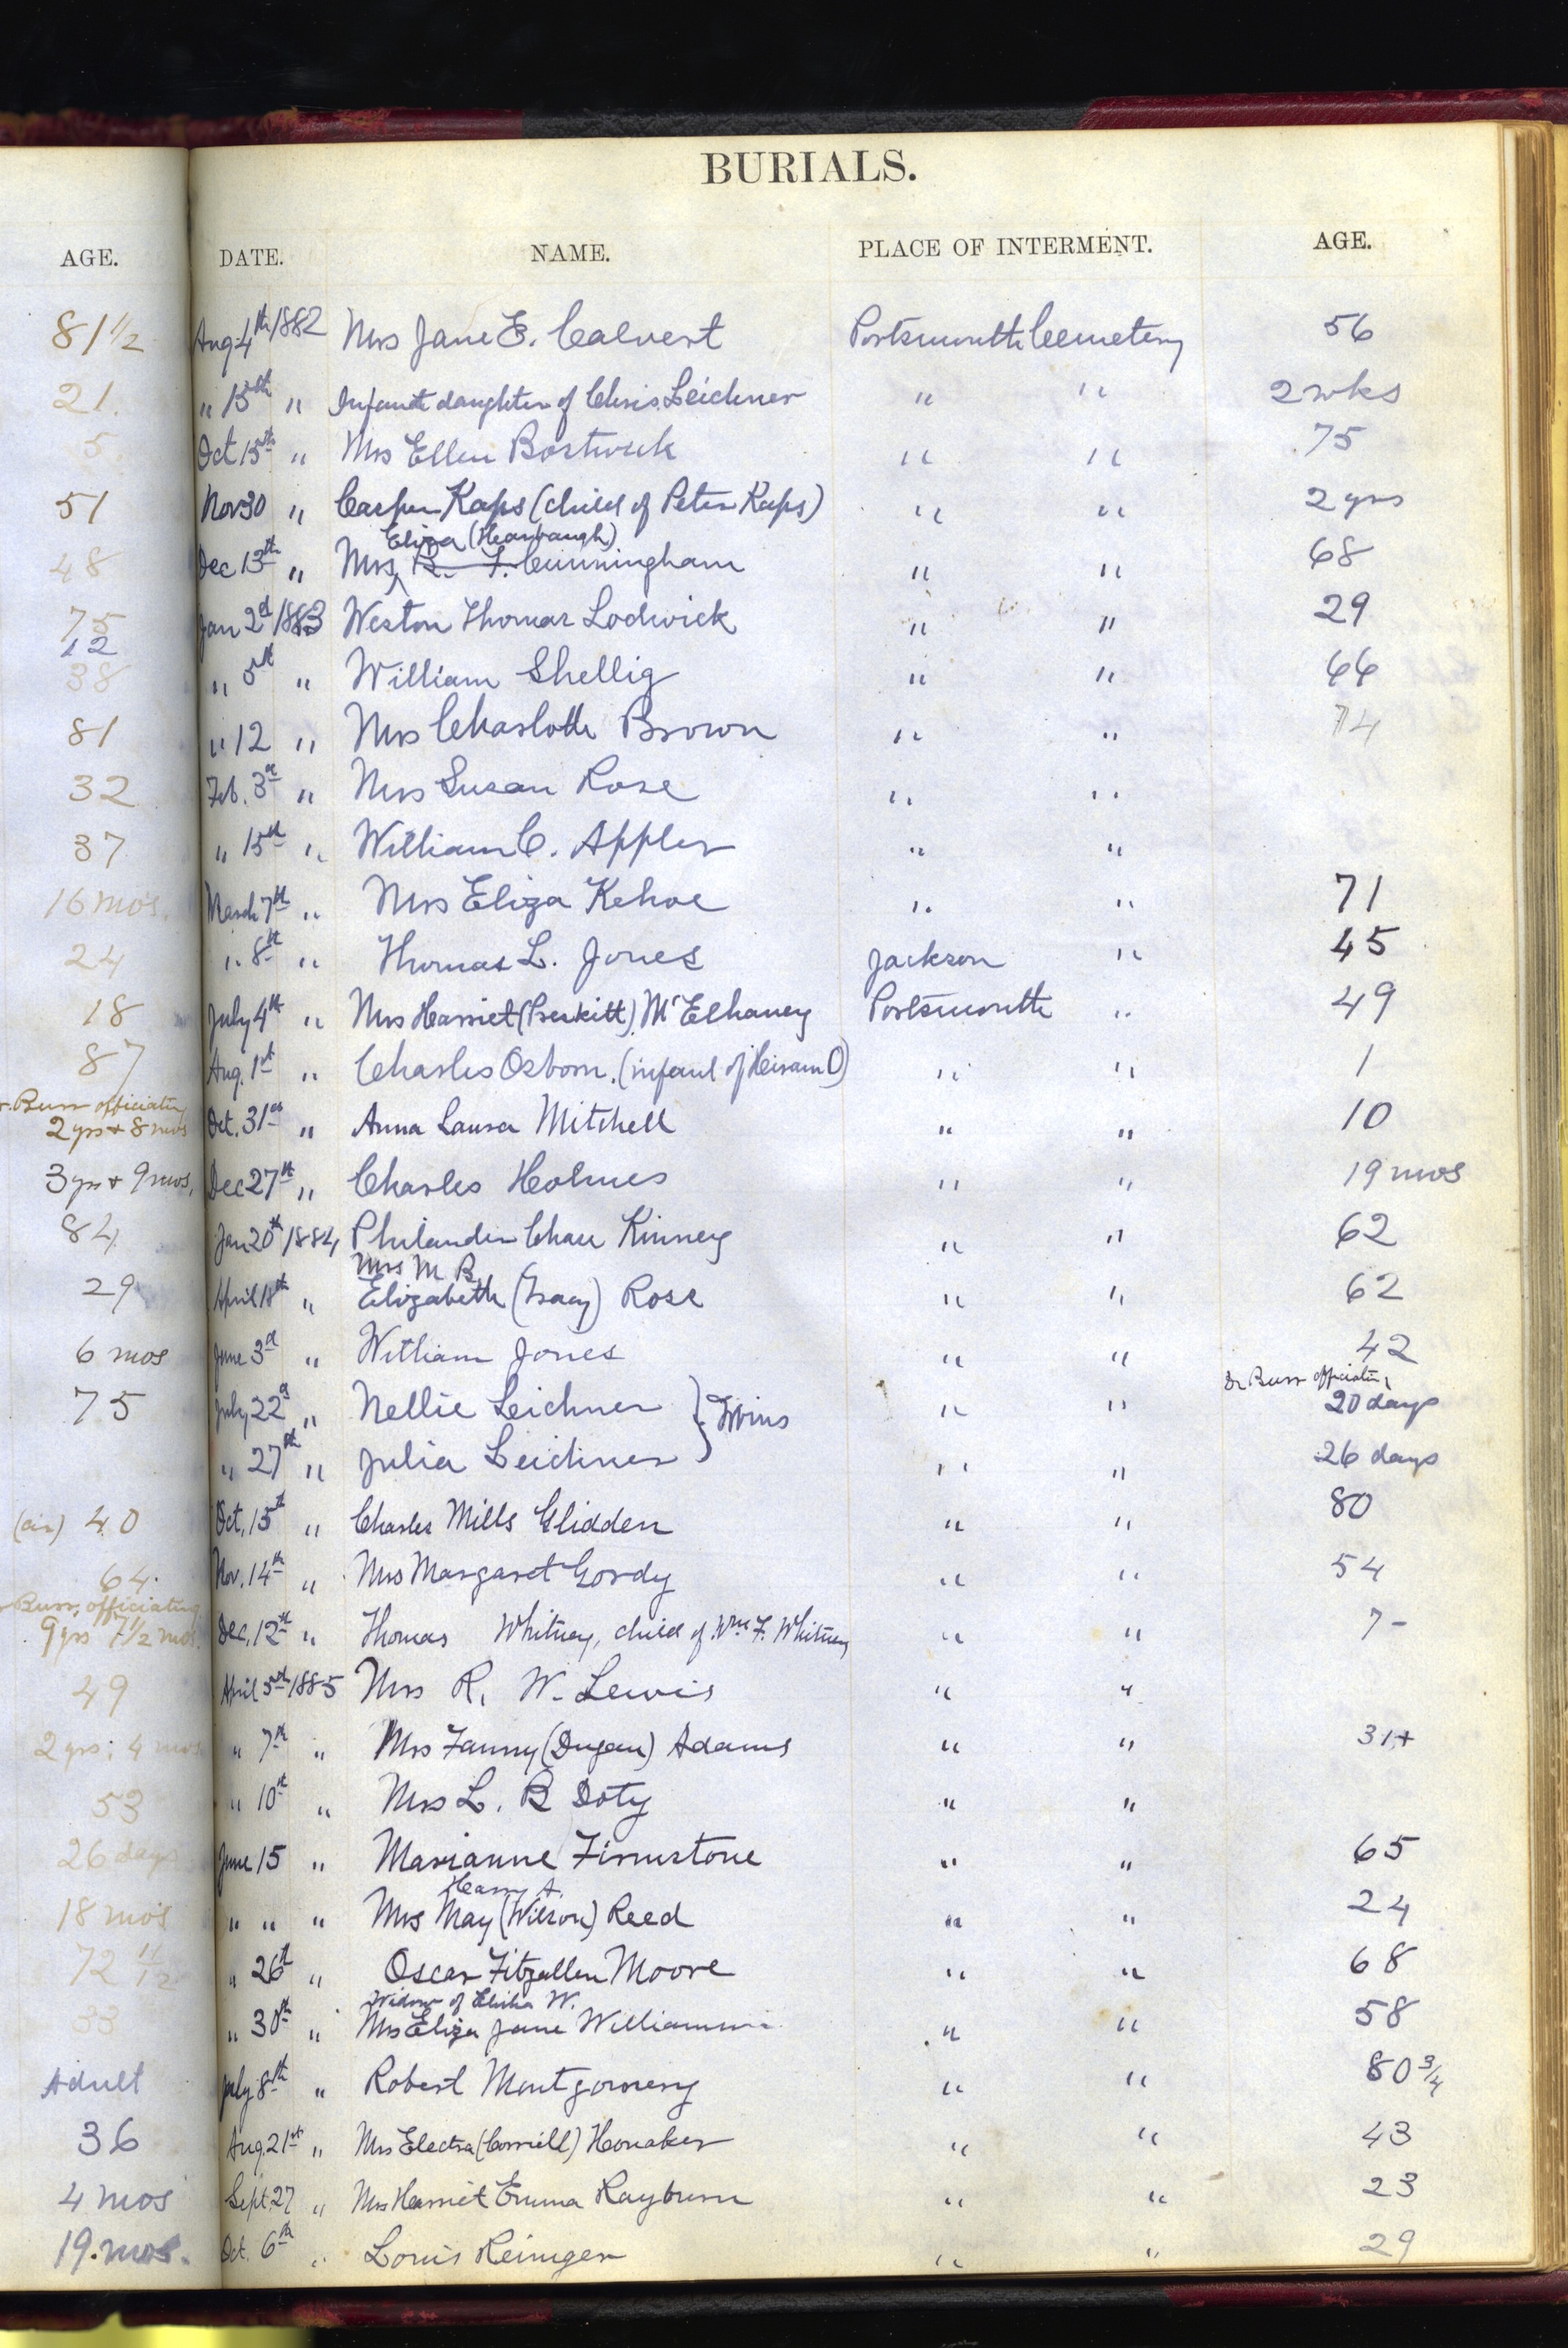 BURIALS.
AGE. DATE. NAME. PLACE OF INTERMENT. AGE.
81 1/2 Aug 4th 1882 Mrs Jane E. Calvert Portsmouth Cemetery 56
21. " 15th " Infant daughter of Chris. Leichner " " 2 wks
5. Oct 15th " Mrs Ellen Bostwick " " 75
51 Nov 30 " Casper Kaps (child of Peter Kaps) " " 2 yrs
Eliza (Hearbaugh)
48 Dec 13th " Mrs R. F. Cunningham " " 68
75 Jan 2d 1883 Weston Thomas Lodwick " " 29
12
38 " 5th " William Shellig " " 66
81 " 12 " Mrs Charlotte Brown " " 74
32 Feb. 3d " Mrs Susan Rose " "
37 " 15th " William C. Appler " "
16 mos. March 7th " Mrs Eliza Kehoe " " 71
24 " 8th " Thomas L. Jones Jackson " 45
18 July 4th " Mrs Harriet (Preskitt) McElhaney Portsmouth " 49
87 Aug. 1st " Charles Osborn. (infant of Hiram O) " " 1
Burr officiating
2 yrs + 8 mos Oct. 31st " Anna Laura Mitchell " " 10
3 yrs + 9 mos, Dec 27th " Charles Holmes " " 19 mos
84 Jan 20th 1884 Philander Chase Kinney " " 62
Mrs M R
29 April 18th " Elizabeth (Tracy) Rose " " 62
6 mos June 3d " William Jones " " 42
Dr Burr officiating
75 July 22d " Nellie Leichner } Twins " " 20 days
" 27th " Julia Leichner " " 26 days
(cir) 40 Oct. 15th " Charles Mills Glidden " " 80
64. Nov. 14th " Mrs Margaret Gordy " " 54
Burr, officiating
9 yrs 7 1/2 mos. Dec. 12th " Thomas Whitney, child of Wm F. Whitney " " 7-
49 April 5th 1885 Mrs R. W. Lewis " "
2 yrs: 4 mos " 7th " Mrs Fanny (Dugan) Adams " " 31+
53 " 10th " Mrs L. B Doty " "
26 days June 15 " Marianne Firmstone " " 65
Harry A.
18 mos " " " Mrs May (Wilson) Reed " " 24
72 11/12 " 26th " Oscar Fitzallen Moore " " 68
Widow of Elisha W.
33 " 30th " Mrs Eliza Jane " " 58
Adult July 8th " Robert Montgomery " " 80 3/4
36 Aug. 21st " Mrs Electra (Correll) Honaker " " 43
4 mos Sept. 27 " Mrs Harriet Emma Rayburn " " 23
19. mos. Oct. 6th " Louis Reiniger " " 29